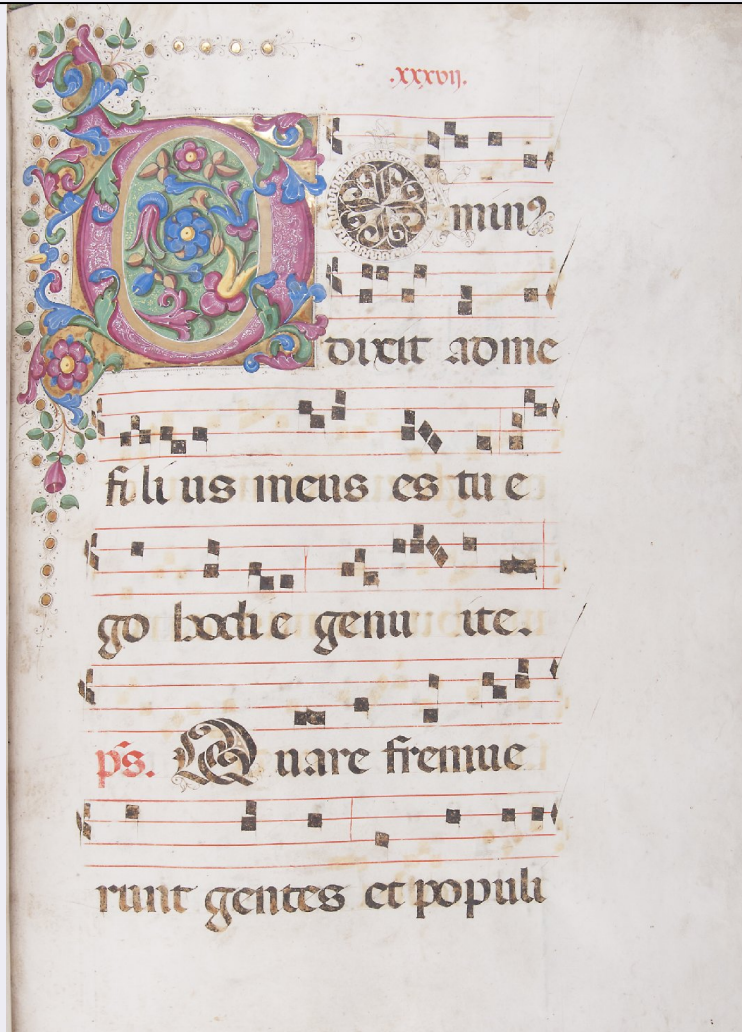 .xxxvij.
DOminꝰ
dixit adme
filius meus es tu e
go hodie genu ite.
p̄s. Quare fremue
runt gentes et populi